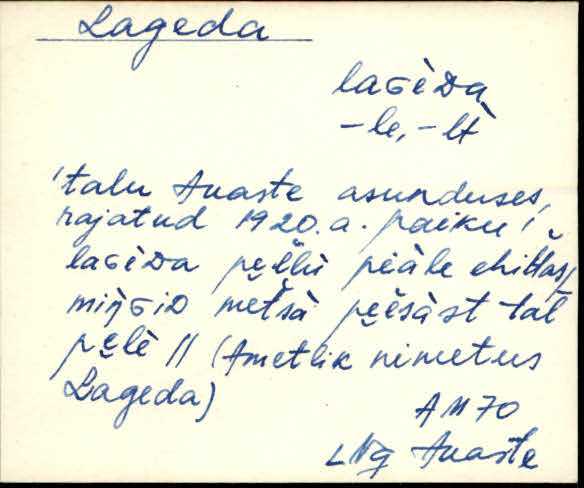 Lageda
laGèDa
-le, -lt
'talu Auaste asunduses,
rajatud 1920. a. paiku'
laGèDa pe̮l̆lù piàle ehitłas,
miŋGiD metsà pe̮èsàst tal
pe̮lè || (Ametlik nimetus
Lageda)
AM 70
LNg Auaste